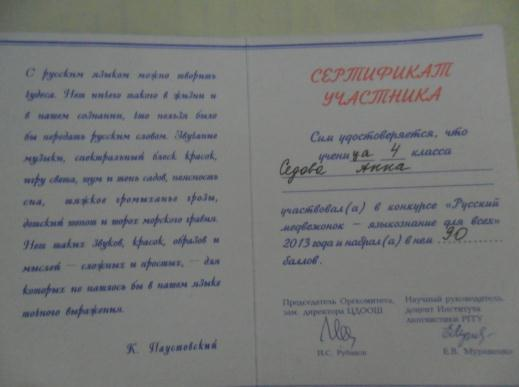 С русским языком можно творить
чудеса. Нет ничего такого в жизни и
в нашем сознании, что нельзя было
бы передать русским словом. Звучание
музыки, спектральный блеск красок,
игру света, шум и тень садов, неясность
сна, тяжкое громыханье грозы,
детский шепот и шорох морского гравия.
Нет таких звуков, красок, образов и
мыслей — сложных и простых, — для
которых не нашлось бы в нашем языке
точного выражения.
К. Паустовский
СЕРТИФИКАТ
УЧАСТНИКА
Сим удостоверяется, что
учени ца 4 класса
Седова Анна
участвовал(а) в конкурсе «Русский
медвежонок – языкознание для всех»
2013 года и набрал(а) в нем 90
баллов.
Председатель Оргкомитета,
зам. директора ЦДООШ
И.С. Рубанов
Научный руководитель,
доцент Института
лингвистики РГГУ
Е.В. Муравенко